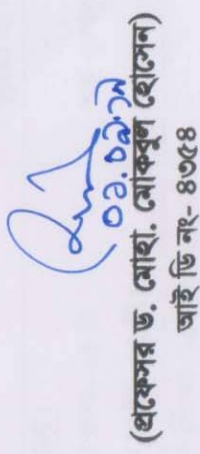 ০১.০৯.১৯
(প্রফেসর ড. মোহা. মোকবুল হোসেন)
আই ডি নং- ৪৩৫৪